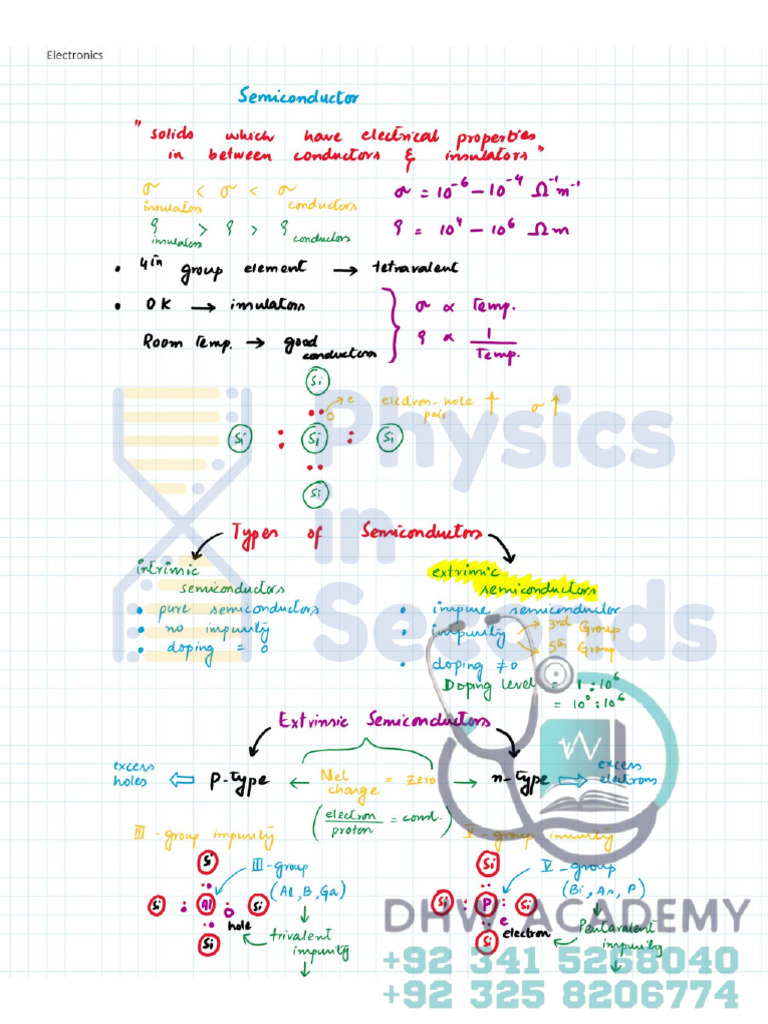 Electronics
Semiconductor
"solids which have electrical properties
in between conductors & insulators"
σ insulators < σ < σ conductors
σ = 10⁻⁶ - 10⁻⁴ Ω⁻¹m⁻¹
ρ insulators > ρ > ρ conductors
ρ = 10⁴ - 10⁶ Ωm
• 4th group element → tetravalent
• OK → insulators
Room Temp. → good conductors
σ ∝ Temp.
ρ ∝ 1/Temp.
Si
e electron-hole pair ↑ σ ↑
o
Si : Si : Si
Si
Types of Semiconductors
intrinsic
semiconductors
• pure semiconductors
• no impurity
• doping = 0
extrinsic
semiconductors
• impure semiconductor
• impurity → 3rd Group
→ 5th Group
• doping ≠ 0
Doping level = 1 : 10⁶
= 10⁰ : 10⁶
Extrinsic Semiconductors
excess holes ⇐ P-type ← Net charge = zero → n-type ⇒ excess electrons
(electron/proton = const.)
III - group impurity
V - group impurity
Si
III-group
(Al, B, Ga)
Si Al Si
hole
trivalent
impurity
Si
Si
V-group
(Bi, As, P)
Si P Si
e
electron
Pentavalent
impurity
Si
Physics
in
Seconds
DHW ACADEMY
+92 341 5268040
+92 325 8206774